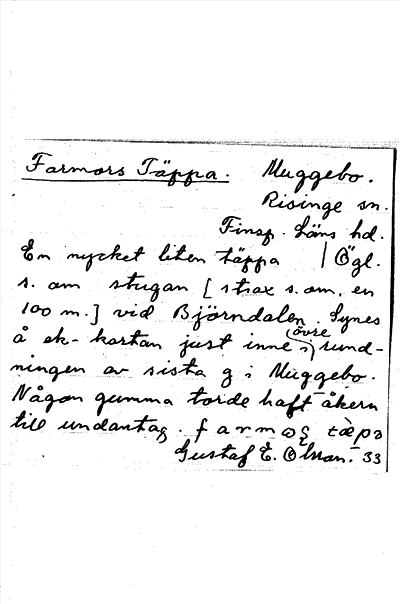 Farmors Täppa. Muggebo.
Risinge sn.
Finsp. Läns hd.
En mycket liten täppa | Ögl.
s. om stugan [strax s. om, en
100 m.] vid Björndalen. Synes
å ek-kartan just inne i övre rund-
ningen av sista g i Muggebo.
Någon gumma torde haft åkern
till undantag. farmoş tàpa
Gustaf E. Olsson. 33